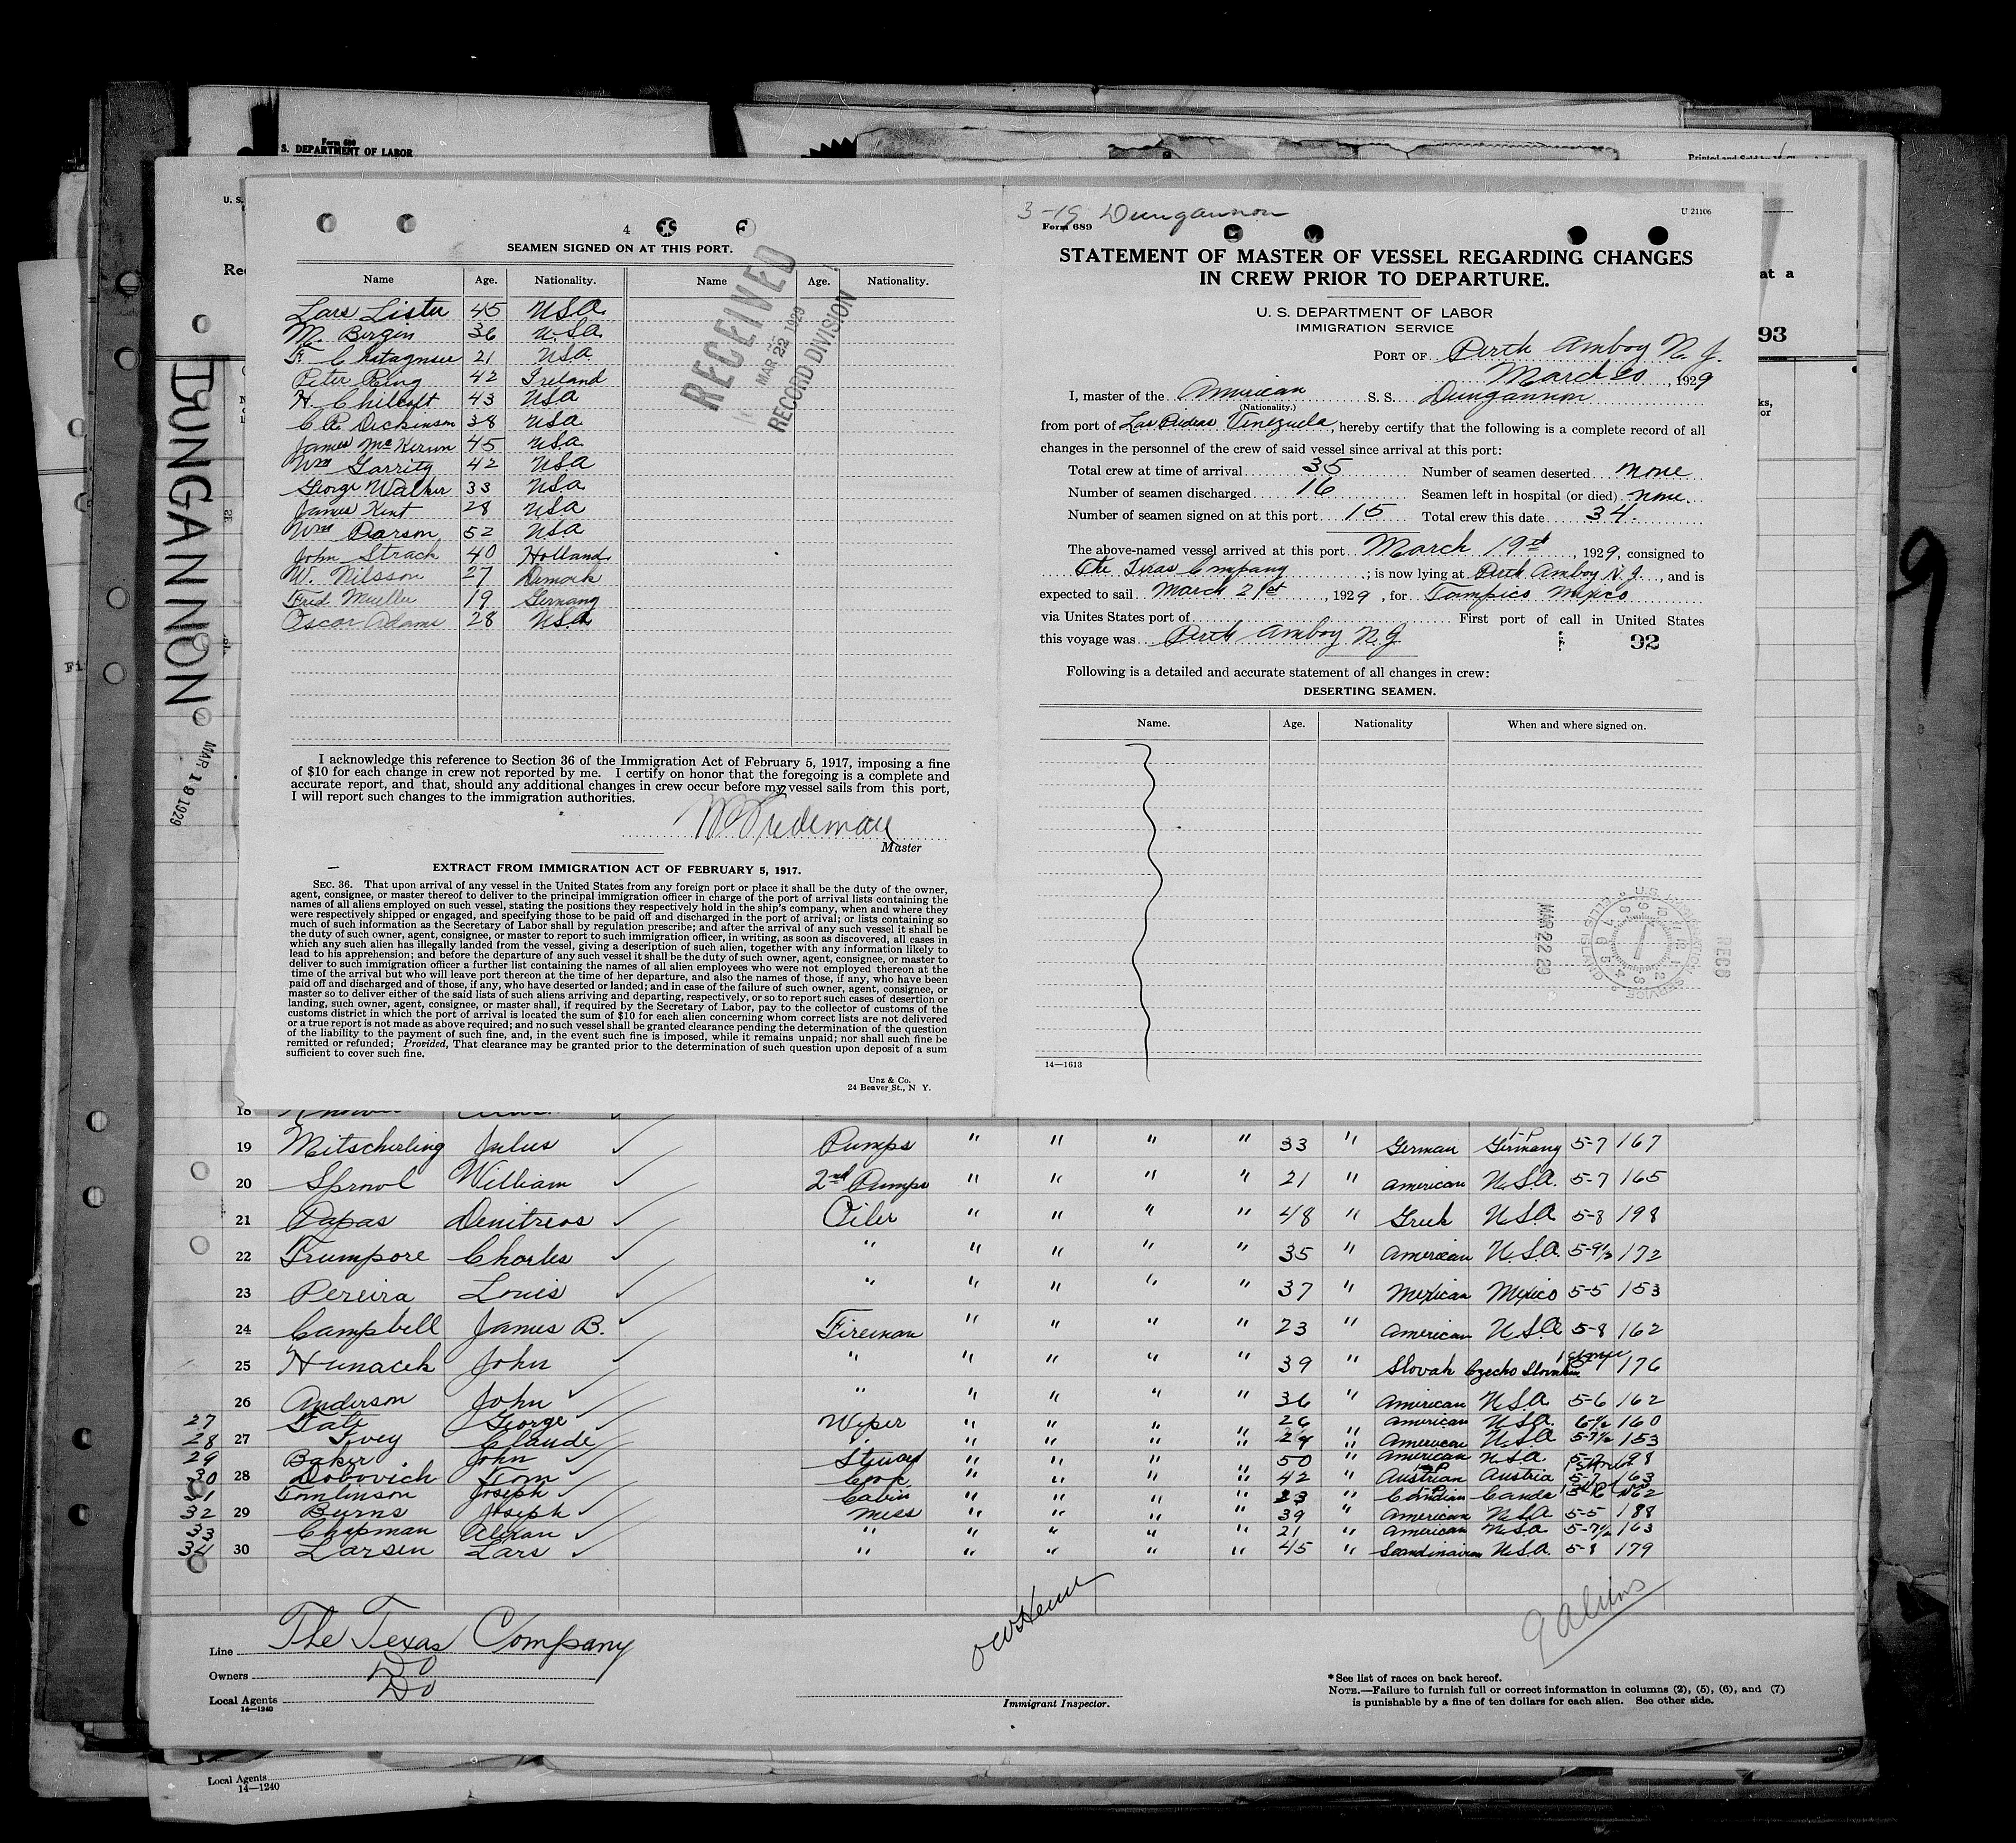 Form 689
S. DEPARTMENT OF LABOR
U. S.
Rec
DUNGANNON
MAR 19 1929
4
SEAMEN SIGNED ON AT THIS PORT.
Name Age. Nationality. Name Age. Nationality.
Lars Lister 45 USA
M. Bergin 36 U.S.A
21 USA
Peter Ring 42 Ireland
H. Chilcoft 43 USA
C R Dickinson 38 USA
James McKerwn 45 USA
Wm Garrity 42 USA
George Walker 33 USA
James Kent 28 USA
Wm Parson 52 USA
John Strach 40 Holland
W. Nilsson 27 Demark
Fred Mueller 19 Germany
Oscar Adams 28 USA
RECEIVED
MAR 22 1929
RECORD DIVISION
I acknowledge this reference to Section 36 of the Immigration Act of February 5, 1917, imposing a fine
of $10 for each change in crew not reported by me. I certify on honor that the foregoing is a complete and
accurate report, and that, should any additional changes in crew occur before my vessel sails from this port,
I will report such changes to the immigration authorities.
Master
EXTRACT FROM IMMIGRATION ACT OF FEBRUARY 5, 1917.
SEC. 36. That upon arrival of any vessel in the United States from any foreign port or place it shall be the duty of the owner,
agent, consignee, or master thereof to deliver to the principal immigration officer in charge of the port of arrival lists containing the
names of all aliens employed on such vessel, stating the positions they respectively hold in the ship's company, when and where they
were respectively shipped or engaged, and specifying those to be paid off and discharged in the port of arrival; or lists containing so
much of such information as the Secretary of Labor shall by regulation prescribe; and after the arrival of any such vessel it shall be
the duty of such owner, agent, consignee, or master to report to such immigration officer, in writing, as soon as discovered, all cases in
which any such alien has illegally landed from the vessel, giving a description of such alien, together with any information likely to
lead to his apprehension; and before the departure of any such vessel it shall be the duty of such owner, agent, consignee, or master to
deliver to such immigration officer a further list containing the names of all alien employees who were not employed thereon at the
time of the arrival but who will leave port thereon at the time of her departure, and also the names of those, if any, who have been
paid off and discharged and of those, if any, who have deserted or landed; and in case of the failure of such owner, agent, consignee, or
master so to deliver either of the said lists of such aliens arriving and departing, respectively, or so to report such cases of desertion or
landing, such owner, agent, consignee, or master shall, if required by the Secretary of Labor, pay to the collector of customs of the
customs district in which the port of arrival is located the sum of $10 for each alien concerning whom correct lists are not delivered
or a true report is not made as above required; and no such vessel shall be granted clearance pending the determination of the question
of the liability to the payment of such fine, and, in the event such fine is imposed, while it remains unpaid; nor shall such fine be
remitted or refunded; Provided, That clearance may be granted prior to the determination of such question upon deposit of a sum
sufficient to cover such fine.
Unz & Co.
24 Beaver St., N Y.
3-19 Dungannon
Form 689
U 21106
STATEMENT OF MASTER OF VESSEL REGARDING CHANGES
IN CREW PRIOR TO DEPARTURE.
U. S. DEPARTMENT OF LABOR
IMMIGRATION SERVICE
PORT OF Perth Amboy N. J.
March 20, 1929
I, master of the American S. S. Dungannon
(Nationality.)
from port of Las Piedras Venezuela, hereby certify that the following is a complete record of all
changes in the personnel of the crew of said vessel since arrival at this port:
Total crew at time of arrival 35 Number of seamen deserted none
Number of seamen discharged 16 Seamen left in hospital (or died) none.
Number of seamen signed on at this port 15 Total crew this date 34.
The above-named vessel arrived at this port March 19th, 1929, consigned to
The Texas Company; is now lying at Perth Amboy N.J., and is
expected to sail March 21st, 1929, for Tampico Mexico
via Unites States port of First port of call in United States
this voyage was Perth Amboy N. J.
92
Following is a detailed and accurate statement of all changes in crew:
DESERTING SEAMEN.
Name. Age. Nationality When and where signed on.
MAR 22 29
REC'D
14—1613
at a
93
9
18
19 Mitscherling Julus Pumps " " " " 33 " German Germany 5-7 167
20 Sprowl William 2nd Pumps " " " " 21 " American U.S.A. 5-7 165
21 Papas Demitreos Oiler " " " " 48 " Greek U.S.A 5-8 198
22 Trumpore Charles " " " " " 35 " American U.S.A. 5-9½ 172
23 Pereira Louis " " " " " 37 " Mexican Mexico 5-5 153
24 Campbell James B. Fireman " " " " 23 " American U.S.A 5-8 162
25 Hunacek John " " " " " 39 " Slovak Czecho Slovakia 5-7 176
26 Anderson John " " " " " 36 " American U.S.A 5-6 162
27 Tate George Wiper " " " " 26 " American U.S.A. 160
28 27 Ivey Claude " " " " " 29 " American U.S.A 5-7½ 153
29 Baker John Steward " " " " 50 American U.S.A
30 28 Dobovich Tom Cook " " " " 42 " Austrian Austria 5-7 163
31 Tomlinson Joseph Cabin " " " " 23 " Candian Canda 162
32 29 Burns Joseph Mess " " " " 39 " American U.S.A 5-5 188
33 Chapman Alexan " " " " " 21 " American U.S.A 5-7½ 163
34 30 Larsen Lars " " " " " 45 " Scandinavian U.S.A. 5-8 179
Line The Texas Company
Owners Do
Local Agents Do
14—1240
Immigrant Inspector.
9 Aliens
*See list of races on back hereof.
NOTE.—Failure to furnish full or correct information in columns (2), (5), (6), and (7)
is punishable by a fine of ten dollars for each alien. See other side.
Local Agents
14—1240